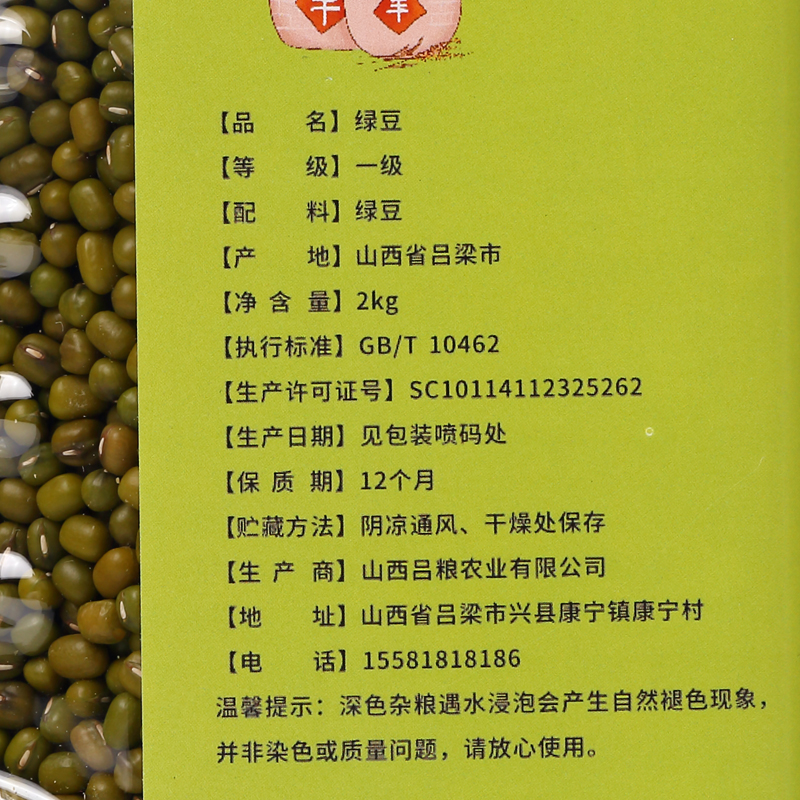 【品　　名】绿豆
【等　　级】一级
【配　　料】绿豆
【产　　地】山西省吕梁市
【净 含 量】2kg
【执行标准】GB/T 10462
【生产许可证号】SC10114112325262
【生产日期】见包装喷码处
【保 质 期】12个月
【贮藏方法】阴凉通风、干燥处保存
【生 产 商】山西吕粮农业有限公司
【地　　址】山西省吕梁市兴县康宁镇康宁村
【电　　话】15581818186
温馨提示：深色杂粮遇水浸泡会产生自然褪色现象，
并非染色或质量问题，请放心使用。